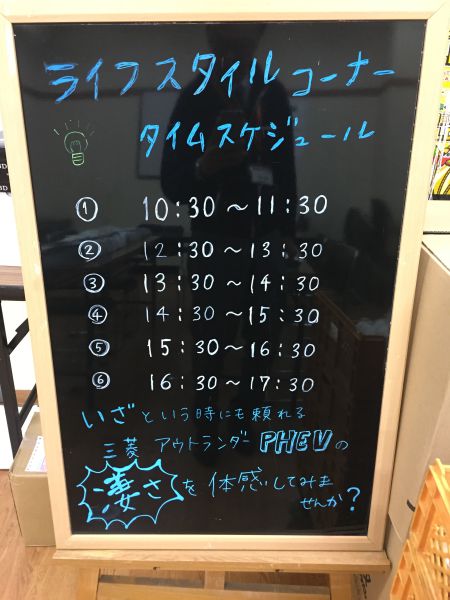 ライフスタイルコーナー
タイムスケジュール
① 10:30～11:30
② 12:30～13:30
③ 13:30～14:30
④ 14:30～15:30
⑤ 15:30～16:30
⑥ 16:30～17:30
いざという時にも頼れる
三菱 アウトランダーPHEVの
凄さを体感してみま
せんか?